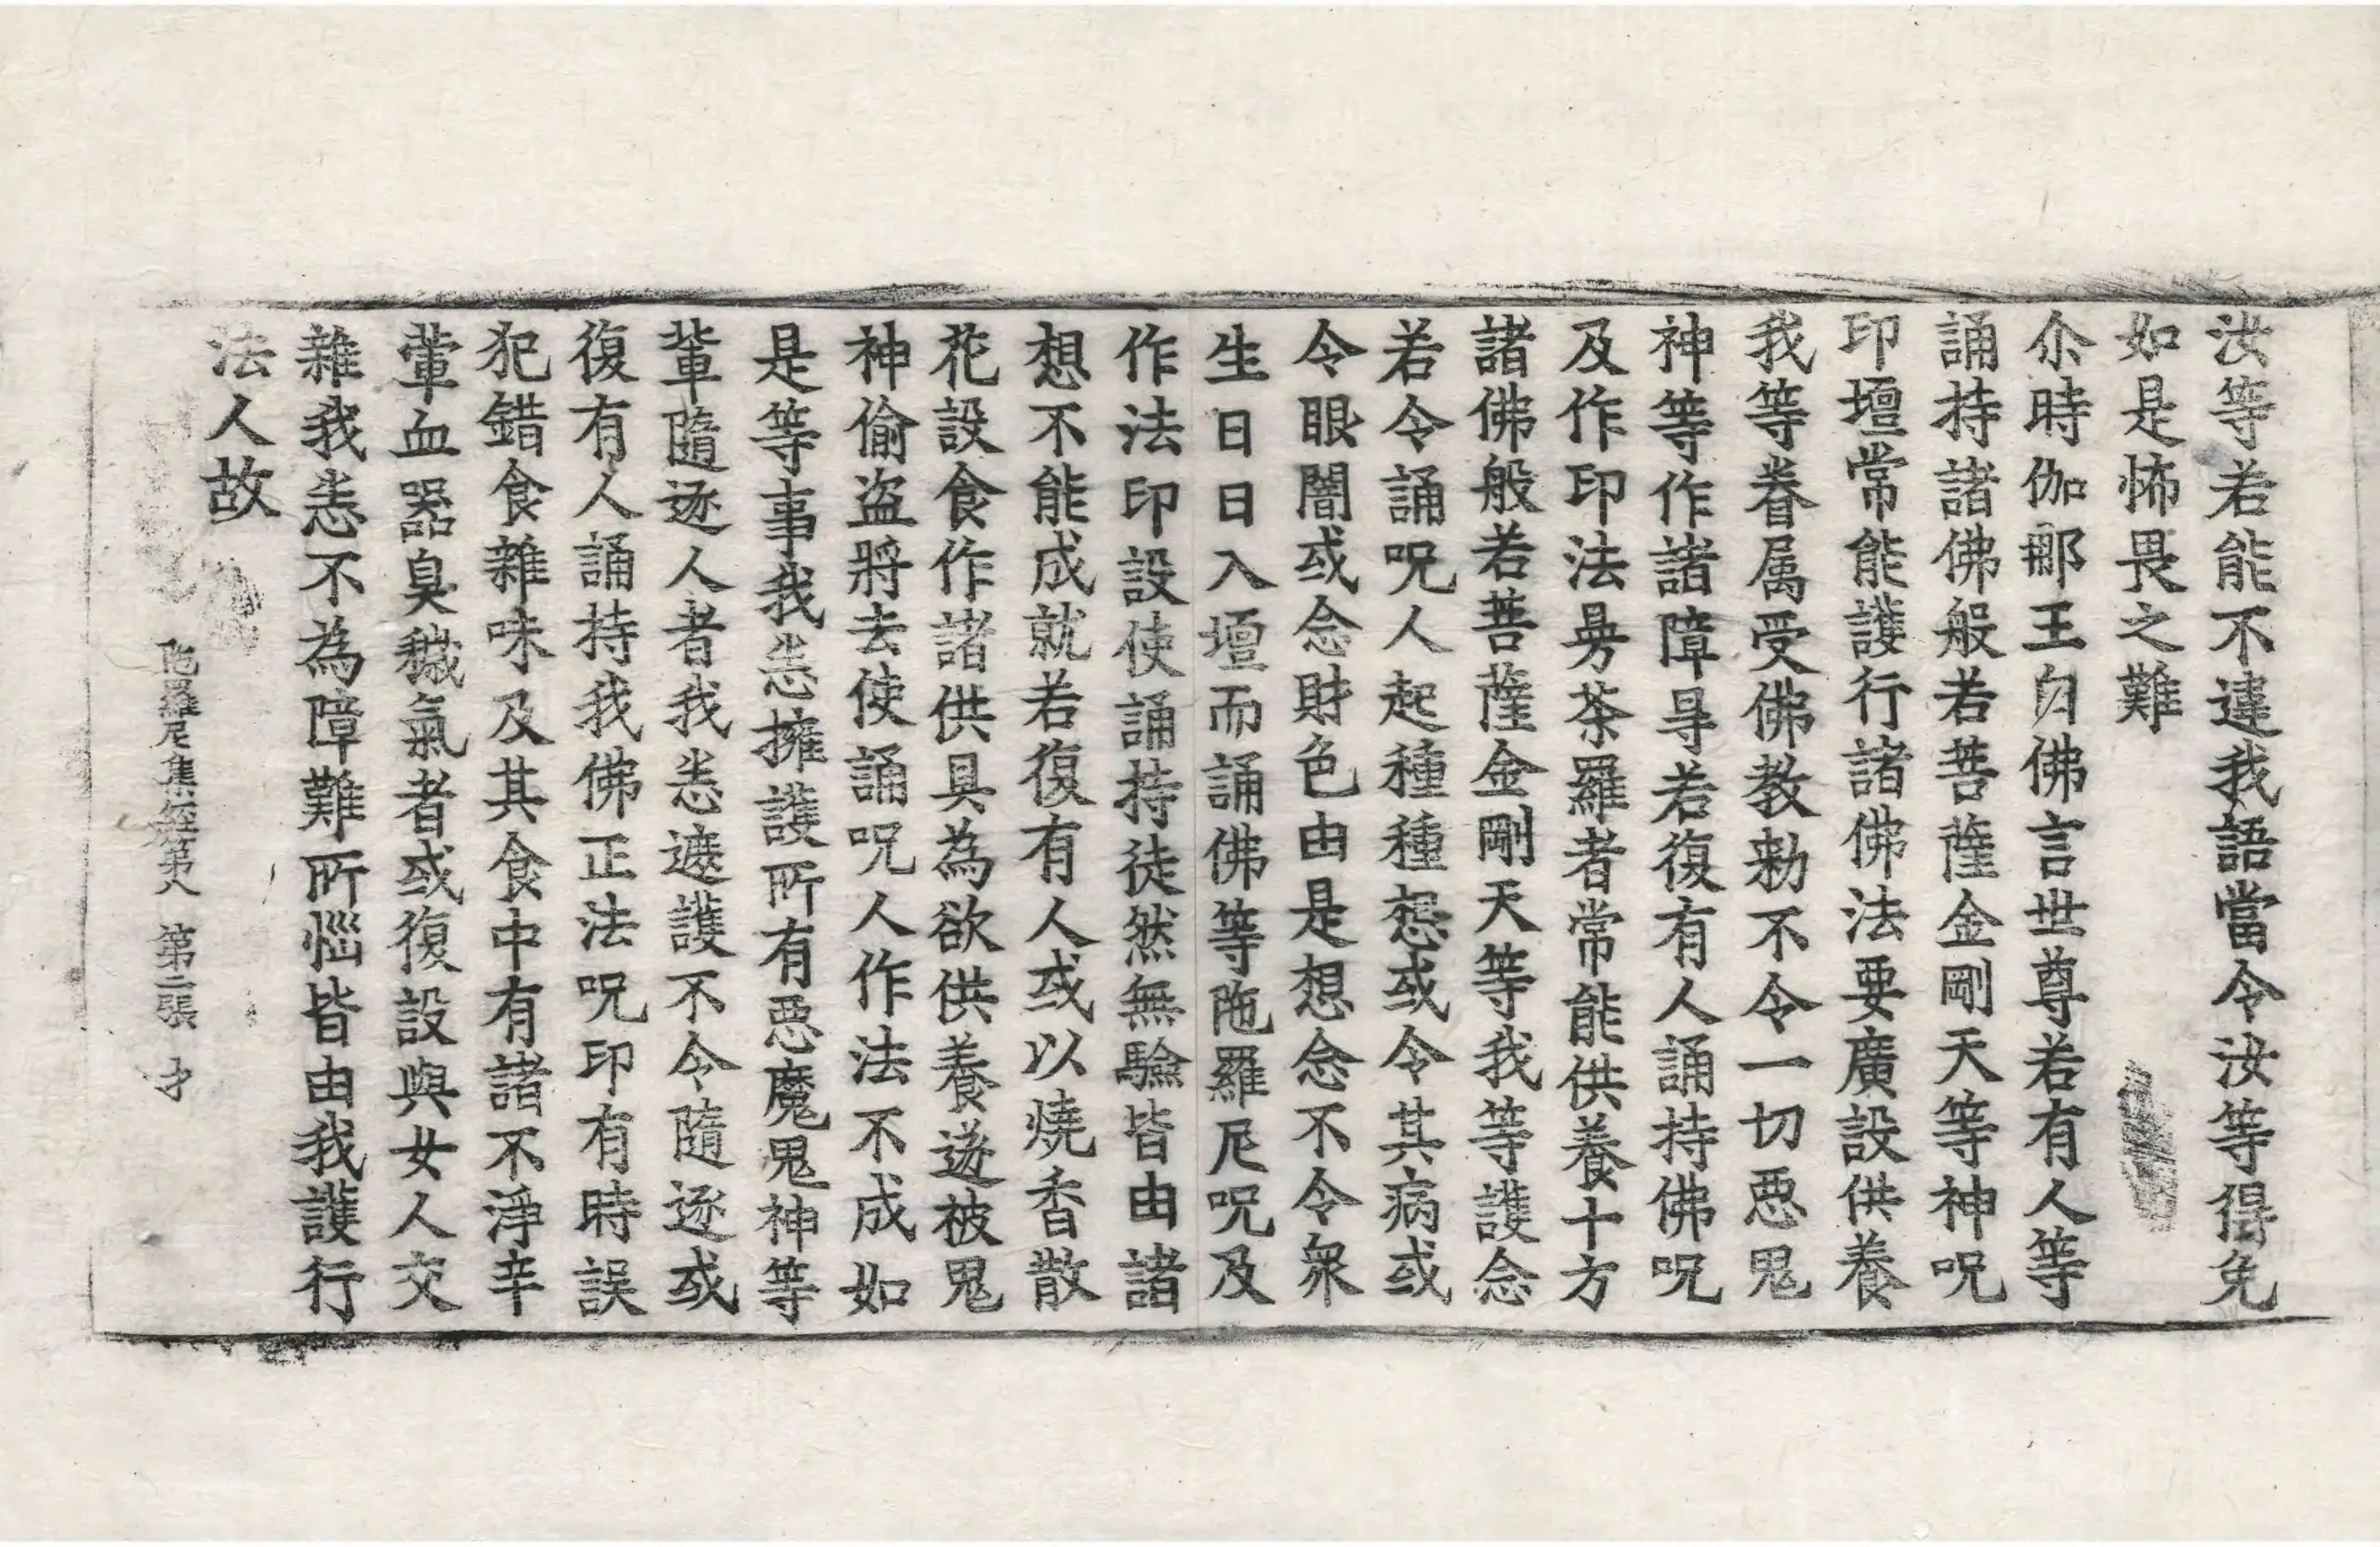 汝等若能不違我語當令汝等得免
如是怖畏之難
尒時伽那王白佛言世尊若有人等
誦持諸佛般若菩薩金剛天等神呪
印壇常能護行諸佛法要廣設供養
我等眷属受佛教勑不令一切惡鬼
神等作諸障㝵若復有人誦持佛呪
及作印法曼荼羅者常能供養十方
諸佛般若菩薩金剛天等我等護念
若令誦呪人起種種怨或令其病或
令眼闇或念財色由是想念不令衆
生日日入壇而誦佛等陁羅尼呪及
作法印設使誦持徒然無驗皆由諸
想不能成就若復有人或以燒香散
花設食作諸供具為欲供養遂被鬼
神偷盜將去使誦呪人作法不成如
是等事我悉擁護所有惡魔鬼神等
輩隨逐人者我悉遮護不令隨逐或
復有人誦持我佛正法呪印有時誤
犯錯食雜味及其食中有諸不淨辛
葷血器臭穢氣者或復設與女人交
雜我悉不為障難所惱皆由我護行
法人故
陁羅尼集經第八 第三張 才